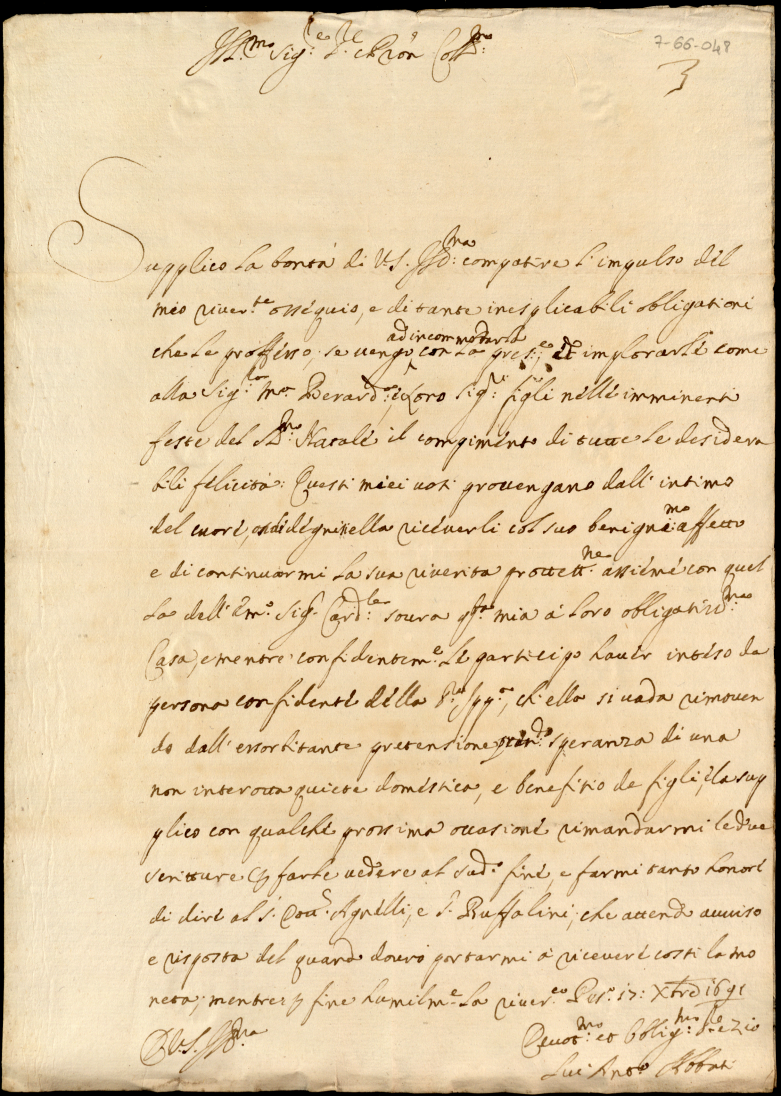 7-66-048
3
Ill.mo Sig.re e P.ron Coll.mo
Supplico la bontà di V.S. Ill.ma compatire l'impulso del
mio river.te ossequio, e di tante inesplicabili obligationi
che le professo, se vengo con la pres.te ad incommodarla et implorarle come
alla Sig.ra Berard.a e Loro Sig.ri figli nelle imminenti
feste del S.mo Natale il compimento di tutte le desidera
bili felicità: Questi miei voti provengano dall'intimo
del cuore, ella riceverli col suo benign.mo affetto
e di continuarmi la sua riverita protett.ne assieme con quel
la dell'Em.o Sig.r Card.le sovra q.ta mia a Loro obligatiss.ma
Casa, e mentre confidentem.e le partecipo haver inteso da
persona confidente della ch'ella si vada rimoven
do dall'essorbitante pretensione speranza di una
non interotta quiete domestica, e benefitio de figli, la sup
plico con qualche prossima occasione rimandarmi le due
scritture p farle vedere al sud.o fine, e farmi tanto honore
di dire al S. Agnelli, e S. Buffalini, che attendo avviso
e risposta del quando dovrò portarmi à ricevere costi la mo
neta; mentre p fine humilm.e la river.co Pes.o 17: Xbre 1691
D V.S. Ill.ma
Devot.mo et Oblig.mo
Ant.o Abbati